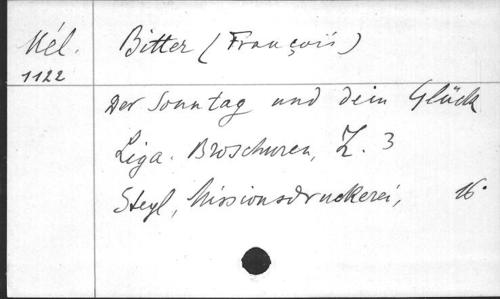 Mél. Bitter (François)
1122
Der Sonntag und dein Glück
Liga. Broschuren, Z. 3
Steyl, Missionsdruckerei, 16°